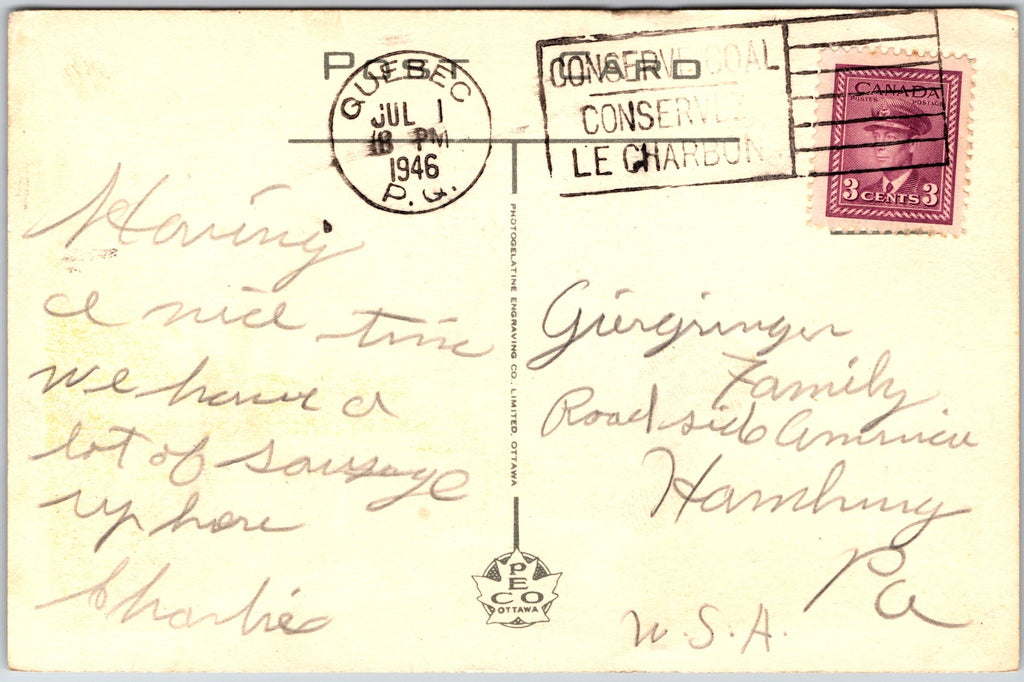 POST CARD
QUEBEC
JUL 1
18 PM
1946
P.Q.
CONSERVE COAL
CONSERVEZ
LE CHARBON
CANADA
POSTES POSTAGE
3 CENTS 3
Having
a nice time
we have a
lot of sausage
up here
Charlie
PHOTOGELATINE ENGRAVING CO., LIMITED, OTTAWA
PECO
OTTAWA
Family
Roadside America
Hamburg
Pa
U.S.A.